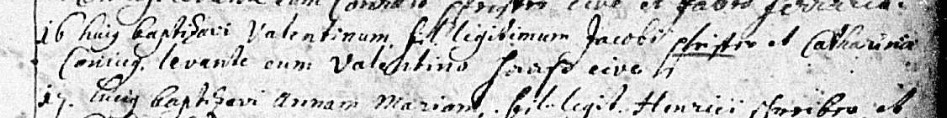 levante eum Conrado Pfister cive et fabro ferrario.
16 huig baptizavi Valentinum fil. legitimum Jacobi Pfister et Catharina
Coniug. levante eum Valentino Haass cive
17. huig baptizavi Annam Mariam fil. legit. Henrici Schreiber et